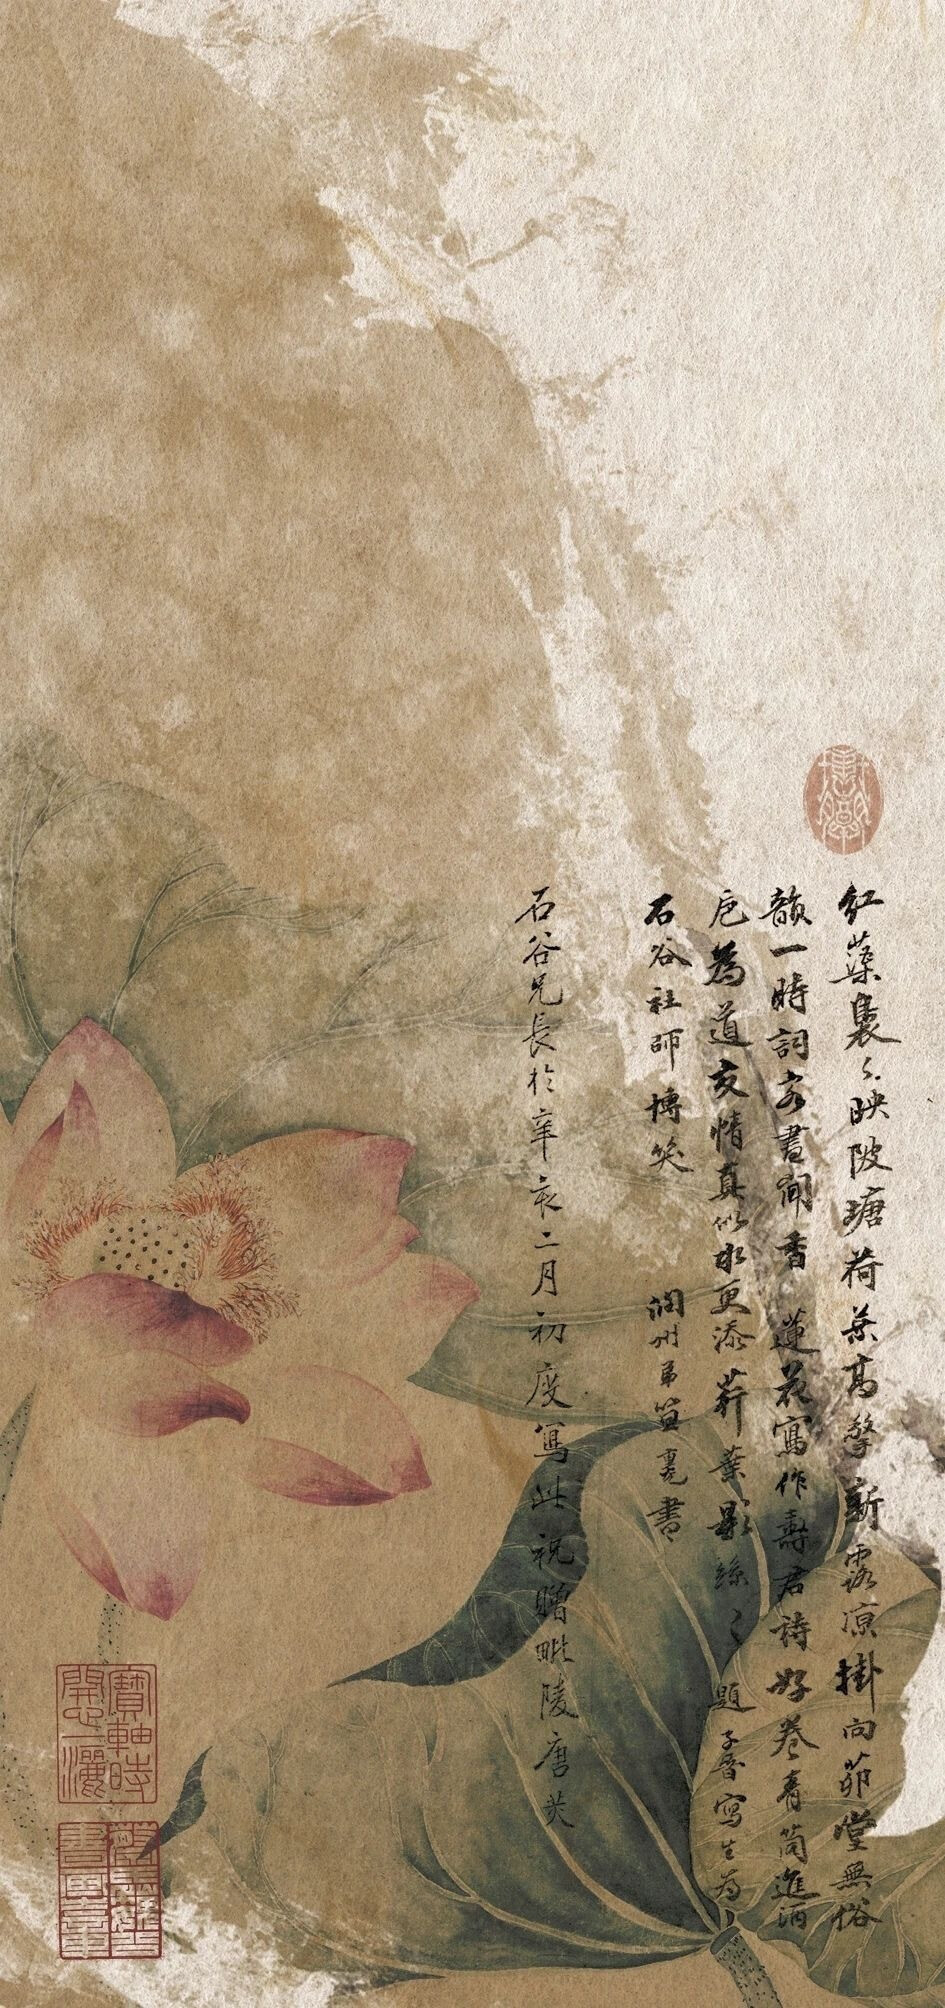 紅蕖裊〻映陂塘荷葉高擎新露凉掛向茆堂無俗
韻一時詞客晝聞香 蓮花寫作壽君詩好卷青筒進酒
巵為道交情真似水更添荇葉影絲〻題子晉寫生為
石谷社師博笑
潤州弟笪重光書
石谷兄長於辛亥二月初度寫此祝贈毗陵唐炗
寶軸時
開心一灑